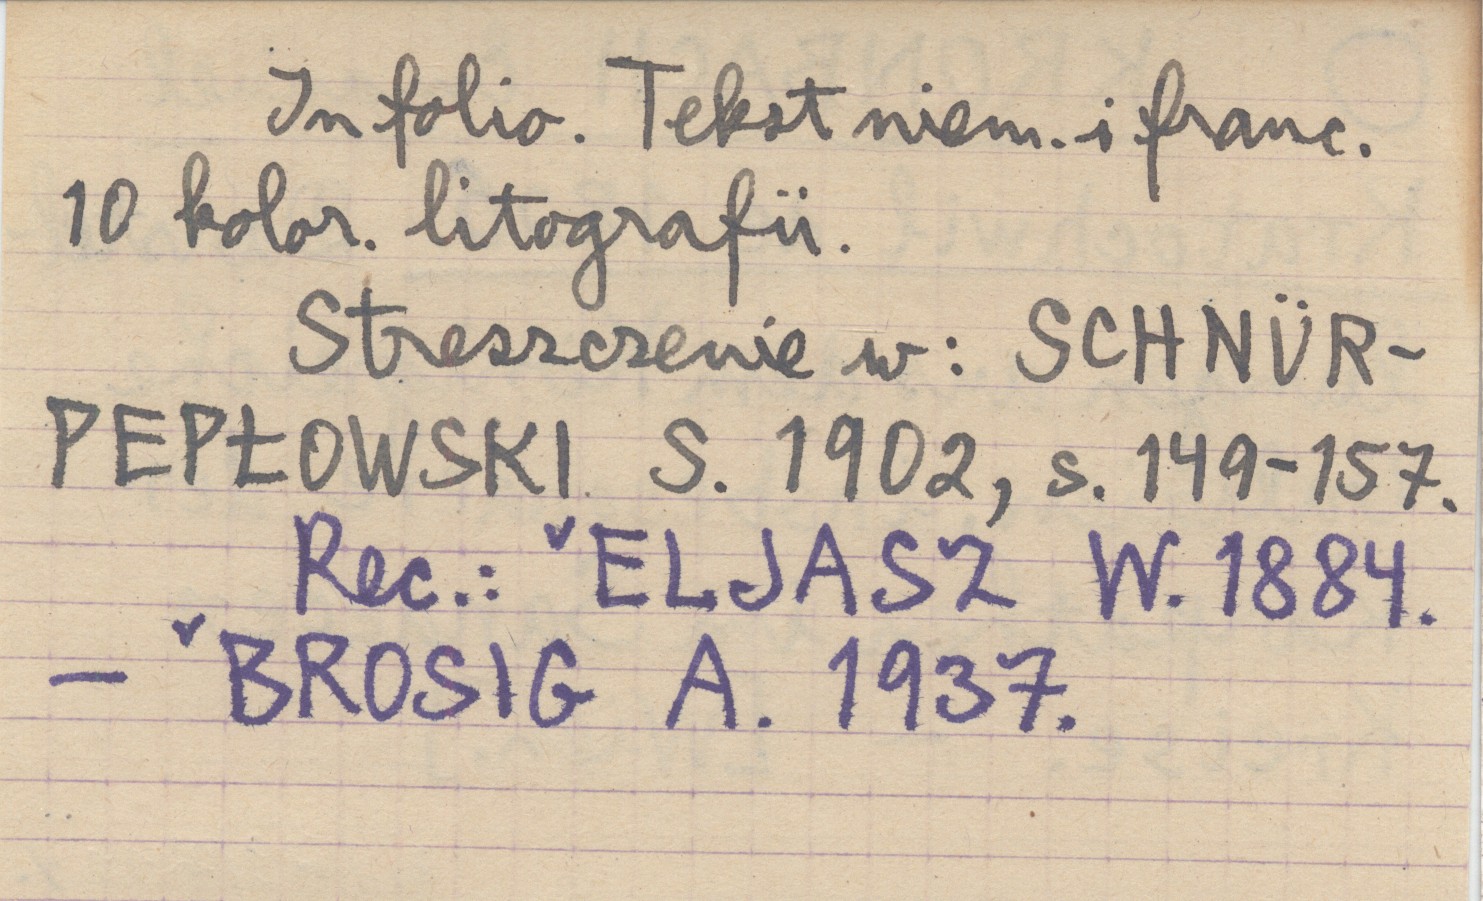 In folio. Tekst niem. i franc.
10 kolor. litografii.
Streszczenie w: SCHNÜR-
PEPŁOWSKI S. 1902, s. 149-157.
Rec.: ˇELJASZ W. 1884.
— ˇBROSIG A. 1937.